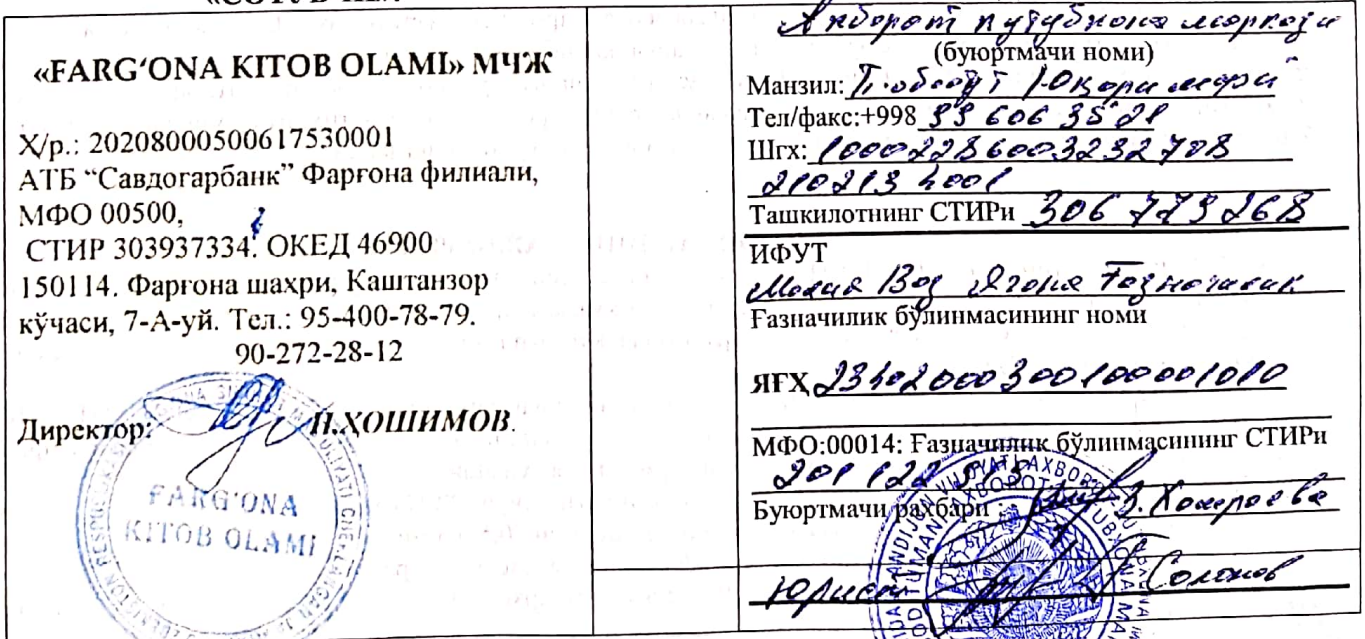 «FARG‘ONA KITOB OLAMI» МЧЖ
Х/р.: 20208000500617530001
АТБ “Савдогарбанк” Фарғона филиали,
МФО 00500,
СТИР 303937334. ОКЕД 46900
150114. Фарғона шаҳри, Каштанзор
кўчаси, 7-А-уй. Тел.: 95-400-78-79.
90-272-28-12
Директор: П.ҲОШИМОВ.
FARG'ONA
KITOB OLAMI
Ахборот кутубхона маркази
(буюртмачи номи)
Манзил:
Тел/факс:+998 99 606 35 21
Шгх: 10002286003232708
2102134001
Ташкилотнинг СТИРи 306 779 268
ИФУТ
Молия Ягона Ғазначилик
Ғазначилик бўлинмасининг номи
ЯҒҲ 23402000300100001010
МФО:00014: Ғазначилик бўлинмасининг СТИРи
201 122
Буюртмачи раҳбари :
Юрист